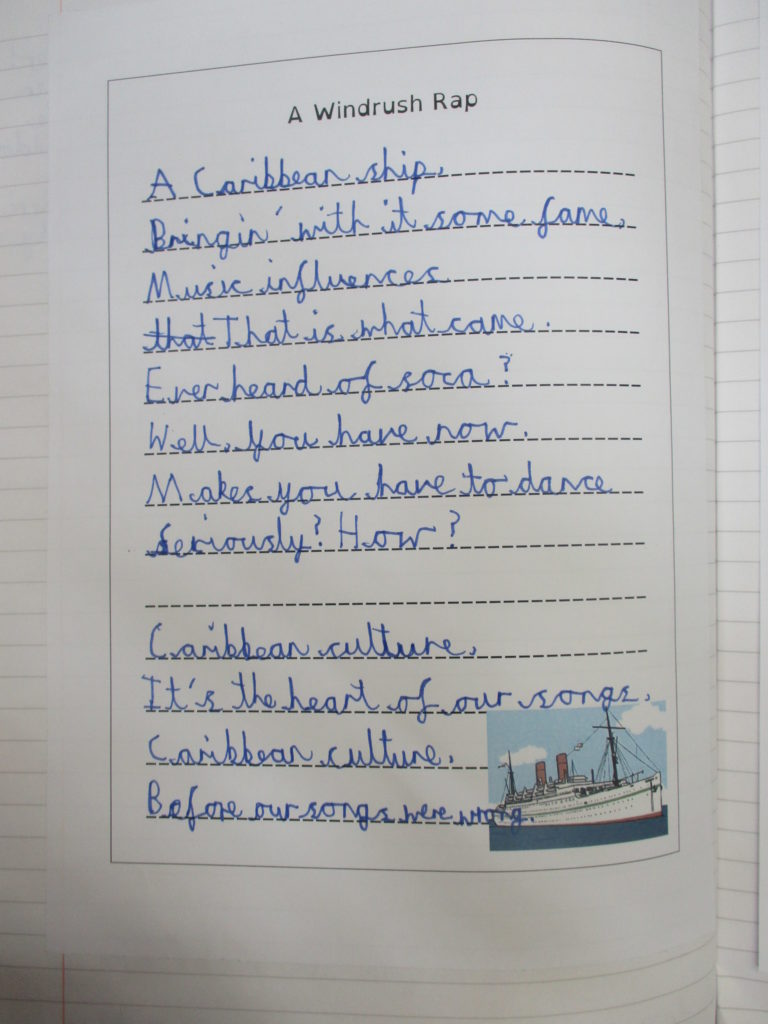 A Windrush Rap
A Caribbean ship,
Bringin' with it some fame,
Music influences
that That is what came.
Ever heard of soca?
Well, you have now.
Makes you have to dance
Seriously? How?
Caribbean culture,
It's the heart of our songs.
Caribbean culture.
Before our songs were wrong.